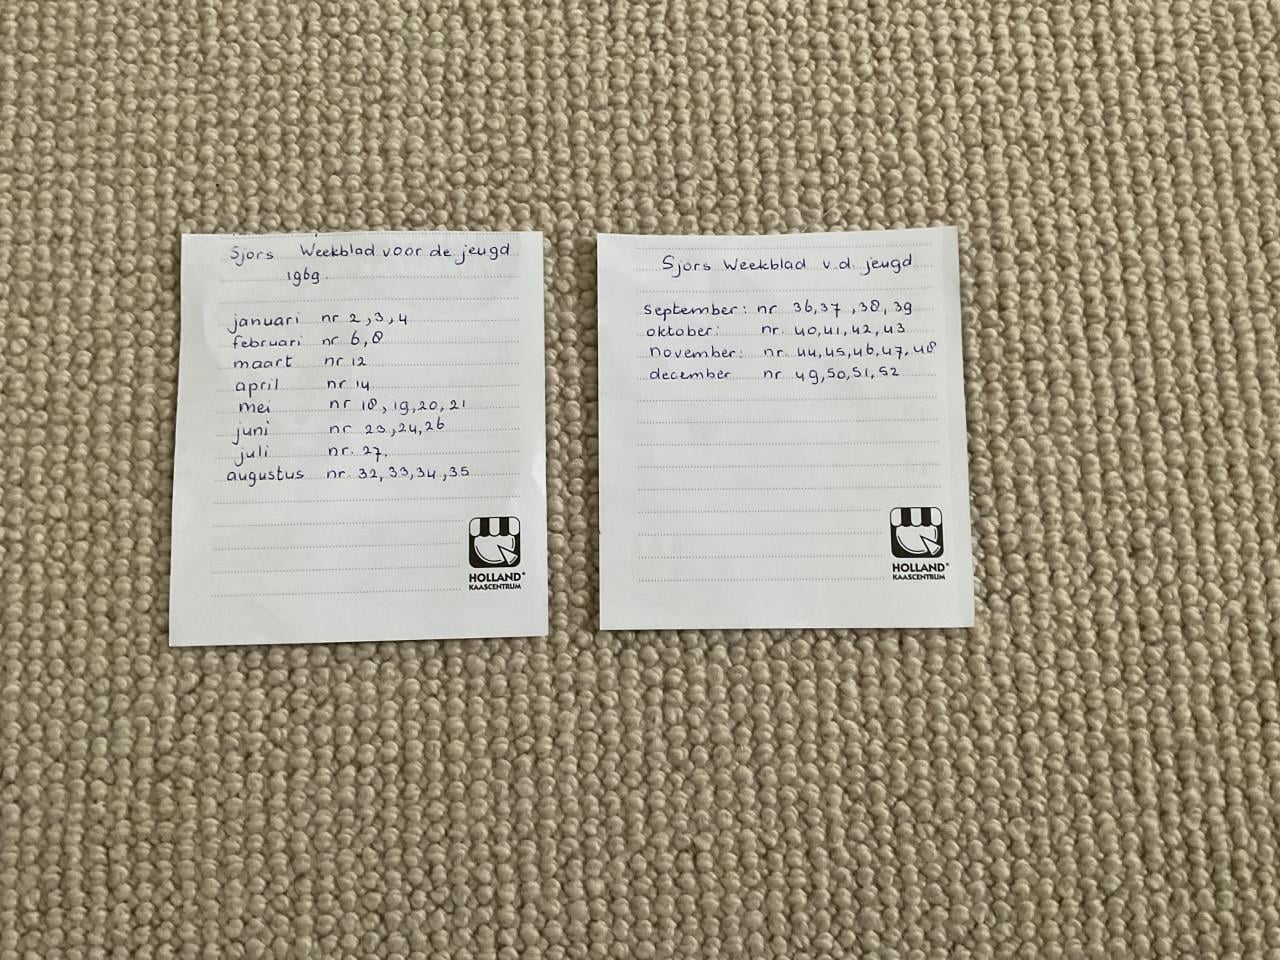 Sjors Weekblad voor de jeugd
1969.
januari nr 2,3,4
februari nr 6,8
maart nr 12
april nr 14
mei nr 18, 19, 20, 21
juni nr. 23, 24, 26
juli nr. 27.
augustus nr. 32, 33, 34, 35
HOLLAND®
KAASCENTRUM
Sjors Weekblad v.d. jeugd
september: nr 36, 37, 38, 39
oktober: nr. 40, 41, 42, 43
november: nr. 44, 45, 46, 47, 48
december nr 49, 50, 51, 52
HOLLAND®
KAASCENTRUM